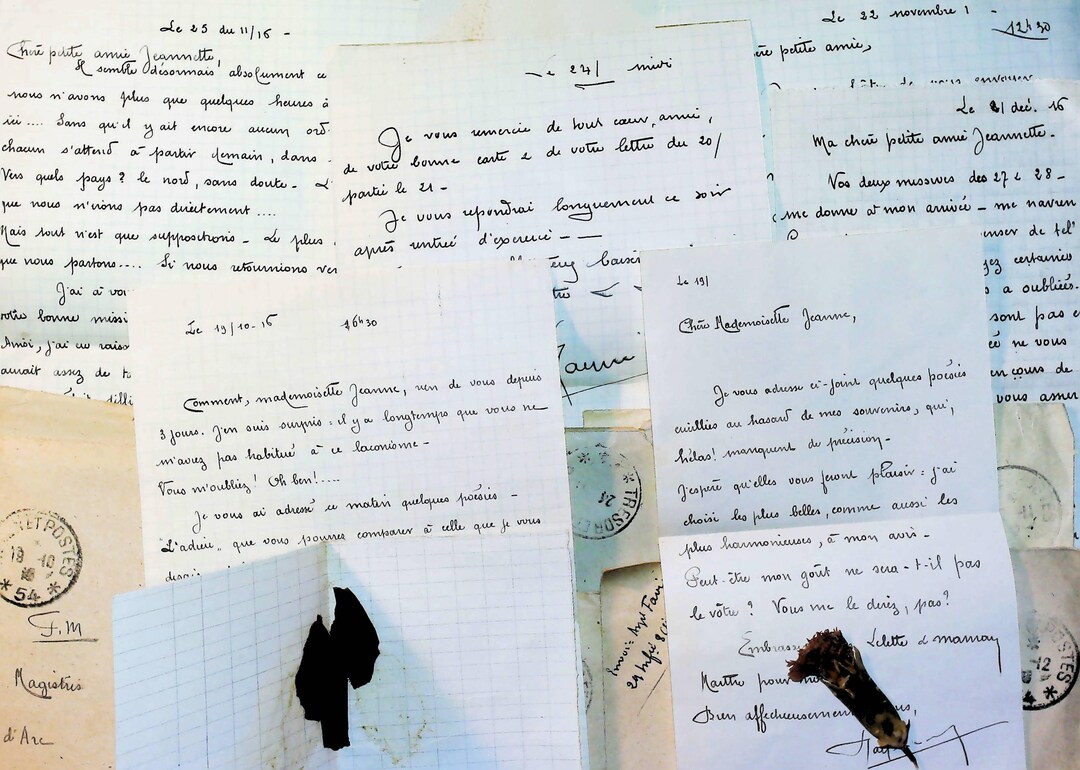 Le 25 du 11/16 -
Chère petite amie Jeannette,
Il semble désormais absolument ce
nous n'avons plus que quelques heures à
ici .... Sans qu'il y ait encore aucun ord
chacun s'attend à partir demain, dans
Vers quels pays ? le nord, sans doute -
que nous n'irions pas directement ....
Mais tout n'est que suppositions - Le plus
que nous partons .... Si nous retournions ver
J'ai à vo
votre bonne missi
Amie, j'ai eu raiso
aurait assez de
Le 24/ midi
Je vous remercie de tout cœur, amie,
de votre bonne carte & de votre lettre du 20/
partie le 21 -
Je vous repondrai longuement ce soir
après rentrée d'exercice -
baiser
Le 22 novembre 1
12h30
ère petite amie,
Le 31 déc. 16
Ma chère petite amie Jeannette -
Vos deux missives des 27 & 28 -
me donne à mon arrivée - me navren
enser de tel
ez certaine
s a oubliées.
sont pas
ne vous
en cours de
vous assur
Le 19/10-16 16h30
Comment, mademoiselle Jeanne, rien de vous depuis
3 jours. J'en suis surpris : il y a longtemps que vous ne
m'aviez pas habitué à ce laconisme -
Vous m'oubliez ! Oh ben ! ....
Je vous ai adressé ce matin quelques poésies -
"L'adieu" que vous pourrez comparer à celle que je vous
Le 19/
Chère Mademoiselle Jeanne,
Je vous adresse ci-joint quelques poésies
cueillies au hasard de mes souvenirs, qui,
hélas ! manquent de précision -
J'espère qu'elles vous feront plaisir : j'ai
choisi les plus belles, comme aussi les
plus harmonieuses, à mon avis -
Peut-être mon goût ne sera-t-il pas
le vôtre ? Vous me le direz, pas ?
Embrass Lolette & maman
Marthe pour mo
Bien affectueusement ous,
ET POSTES
19 10
16
* 54 *
F.M
Magistris
d'Arc
* TRESOR E
POSTES
12